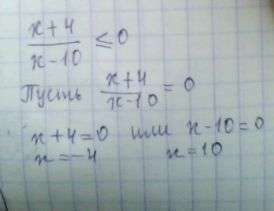 x+4 / x-10 ≤ 0
Пусть x+4 / x-10 = 0
x+4=0 или x-10=0
x=-4 x=10